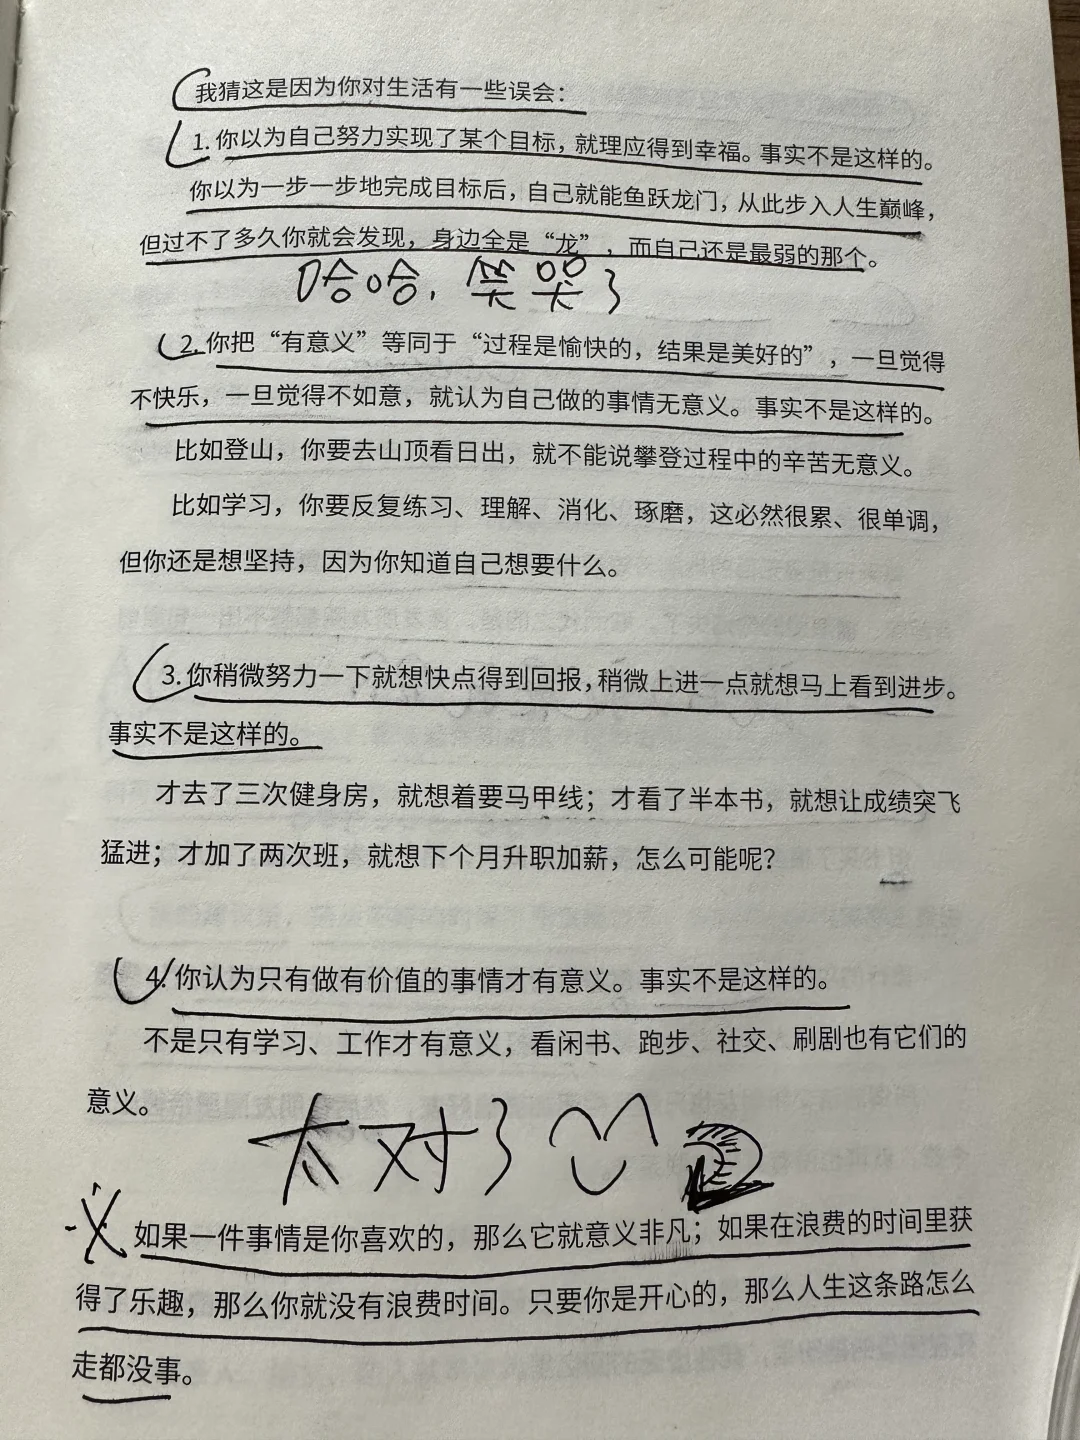 我猜这是因为你对生活有一些误会：
1. 你以为自己努力实现了某个目标，就理应得到幸福。事实不是这样的。
你以为一步一步地完成目标后，自己就能鱼跃龙门，从此步入人生巅峰，
但过不了多久你就会发现，身边全是“龙”，而自己还是最弱的那个。
哈哈，笑哭了
2. 你把“有意义”等同于“过程是愉快的，结果是美好的”，一旦觉得
不快乐，一旦觉得不如意，就认为自己做的事情无意义。事实不是这样的。
比如登山，你要去山顶看日出，就不能说攀登过程中的辛苦无意义。
比如学习，你要反复练习、理解、消化、琢磨，这必然很累、很单调，
但你还是想坚持，因为你知道自己想要什么。
3. 你稍微努力一下就想快点得到回报，稍微上进一点就想马上看到进步。
事实不是这样的。
才去了三次健身房，就想着要马甲线；才看了半本书，就想让成绩突飞
猛进；才加了两次班，就想下个月升职加薪，怎么可能呢？
4. 你认为只有做有价值的事情才有意义。事实不是这样的。
不是只有学习、工作才有意义，看闲书、跑步、社交、刷剧也有它们的
意义。
太对了
如果一件事情是你喜欢的，那么它就意义非凡；如果在浪费的时间里获
得了乐趣，那么你就没有浪费时间。只要你是开心的，那么人生这条路怎么
走都没事。